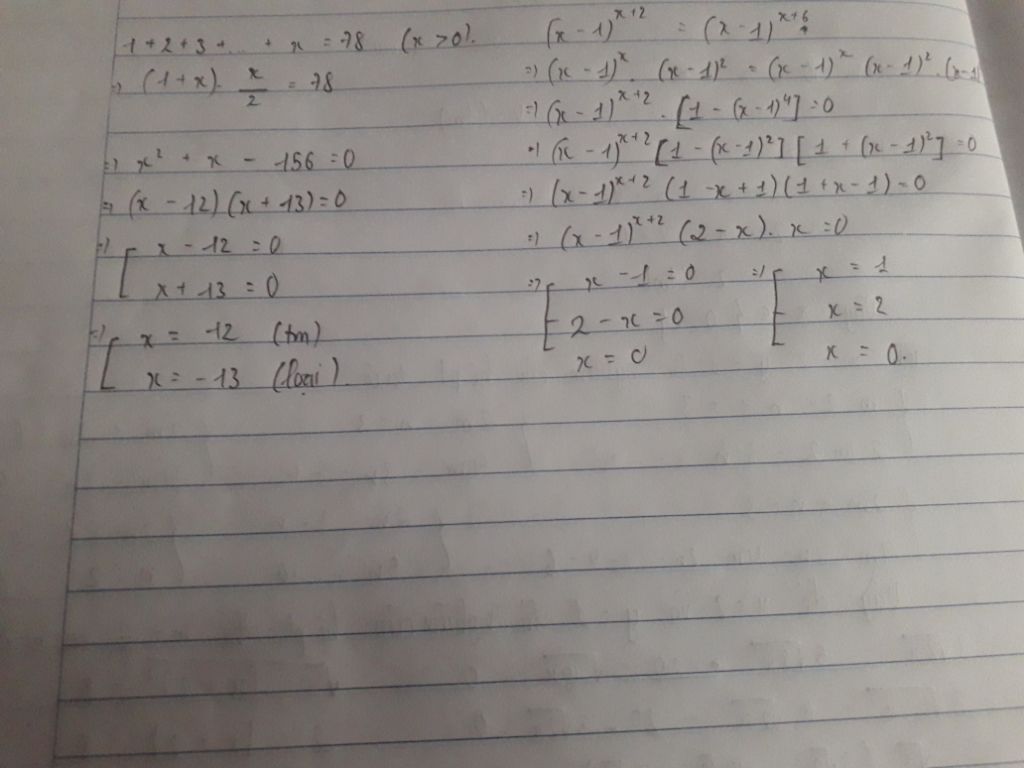 1 + 2 + 3 + ... + x = 78 (x > 0).
=> (1 + x) . x/2 = 78
=> x² + x - 156 = 0
=> (x - 12)(x + 13) = 0
=> [ x - 12 = 0
x + 13 = 0
=> [ x = 12 (tm)
x = -13 (loại).
(x - 1)^{x+2} = (x - 1)^{x+6}
=> (x - 1)^x . (x - 1)² = (x - 1)^x (x - 1)² . (x-1)
=> (x - 1)^{x+2} . [1 - (x - 1)⁴] = 0
=> (x - 1)^{x+2} [1 - (x - 1)²] [1 + (x - 1)²] = 0
=> (x - 1)^{x+2} (1 - x + 1)(1 + x - 1) = 0
=> (x - 1)^{x+2} (2 - x) . x = 0
=> [ x - 1 = 0 => [ x = 1
2 - x = 0 x = 2
x = 0 x = 0.